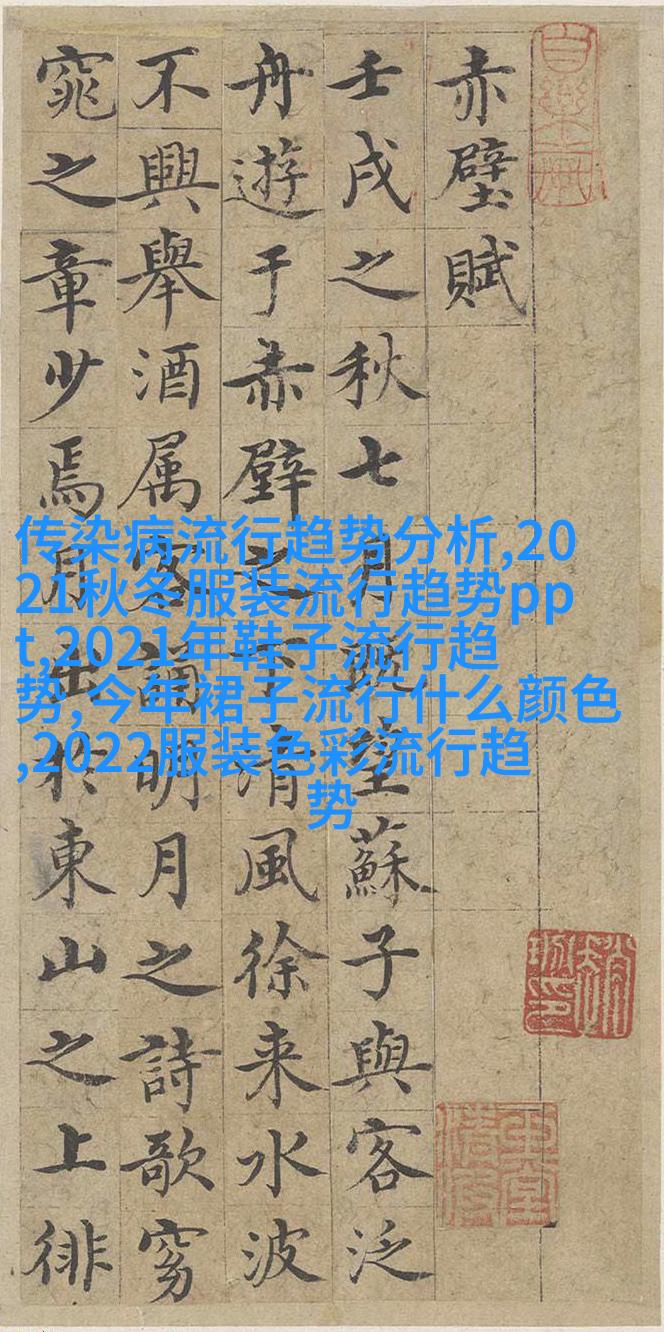 赤壁賦
壬戌之秋七月既望蘇子與客泛
舟遊于赤壁之下清風徐来水波
不興舉酒属客誦明月之詩歌窈
窕之章少焉月出扵東山之上徘
传染病流行趋势分析,20
21秋冬服装流行趋势pp
t,2021年鞋子流行趋
势,今年裙子流行什么颜色
,2022服装色彩流行趋
势